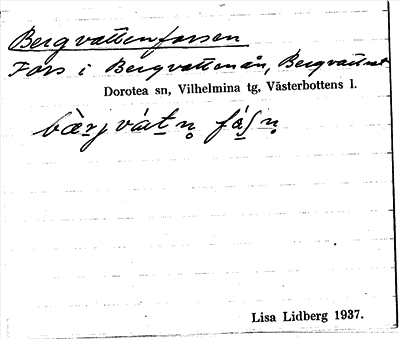 Bergvattenforsen
Fors i Bergvattenån, Bergvattnet
Dorotea sn, Vilhelmina tg, Västerbottens l.
Lisa Lidberg 1937.